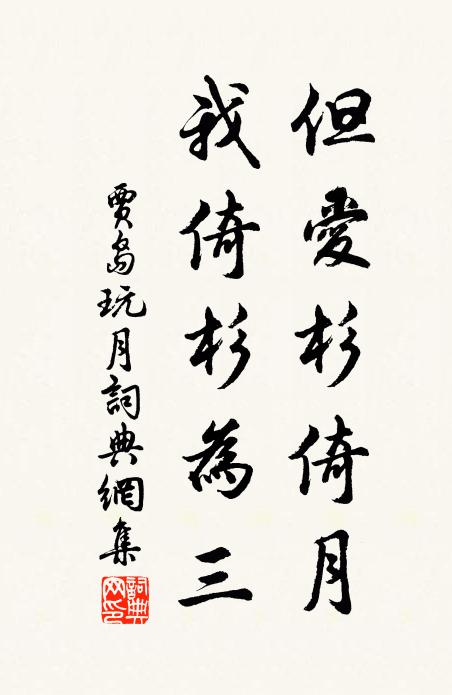 但愛杉倚月
我倚杉為三
賈島玩月詞典網集
詞典網印